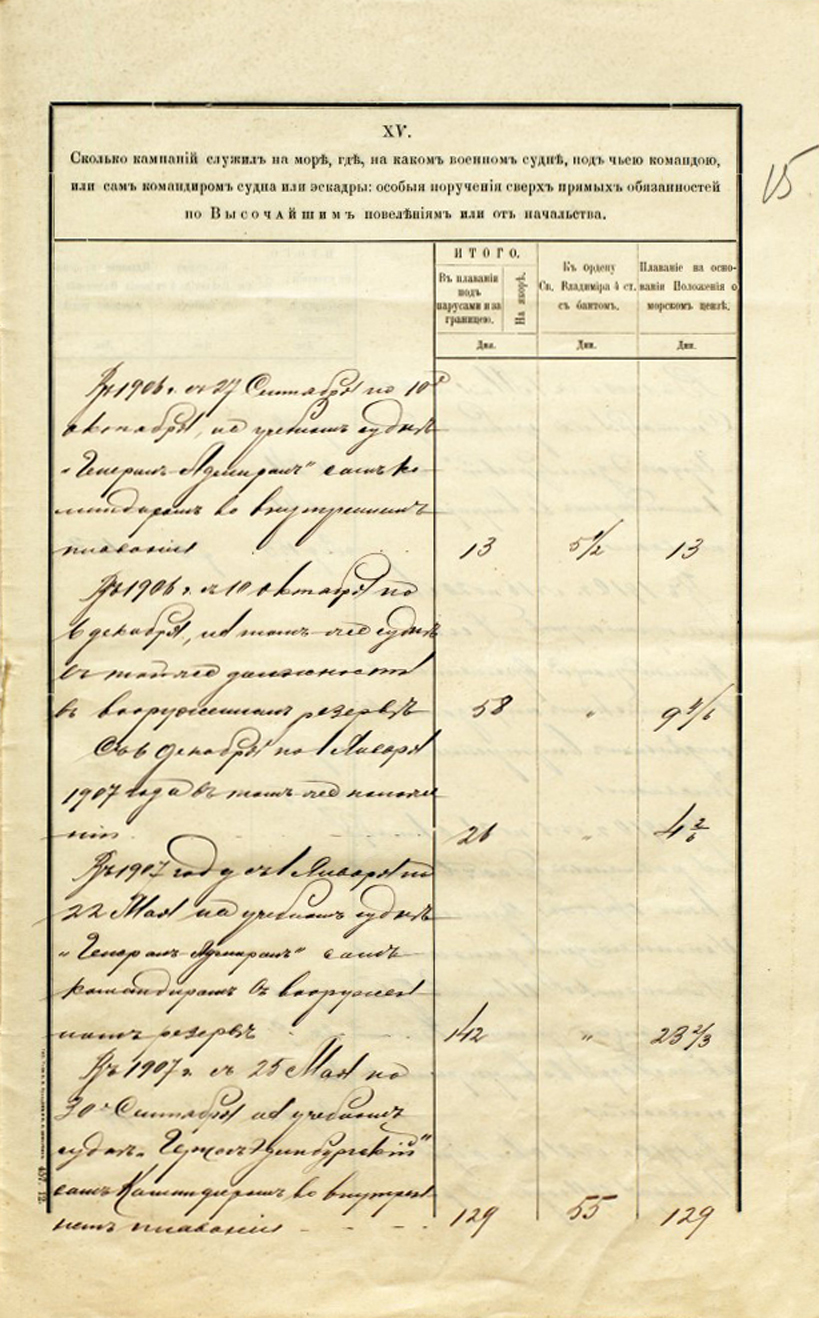 15
XV.
Сколько кампаній служилъ на морѣ, гдѣ, на какомъ военномъ суднѣ, подъ чьею командою,
или самъ командиромъ судна или эскадры: особыя порученія сверхъ прямыхъ обязанностей
по Высочайшимъ повелѣніямъ или отъ начальства.
ИТОГО.
Въ плаваніи подъ парусами и за границею.
На якорѣ.
Къ ордену Св. Владиміра 4 ст. съ бантомъ.
Плаваніе на основаніи Положенія о морскомъ цензѣ.
Дня.
Дни.
Дни.
Въ 1906 г. съ 27 Сентября по 10е
октября, на учебномъ суднѣ
„Генералъ-Адмиралъ" самъ ко-
мандиромъ во внутреннемъ
плаваніи 13 5 1/2 13
Въ 1906 г. съ 10 октября по
6 декабря, на томъ-же суднѣ
въ той-же должности
въ вооруженномъ резервѣ 58 „ 9 4/6
Съ 6 декабря по 1 Января
1907 года въ томъ-же положе
ніи 26 „ 4 2/6
Въ 1907 году съ 1 Января по
22 Мая на учебномъ суднѣ
„Генералъ-Адмиралъ" самъ
командиромъ въ вооружен
номъ резервѣ 142 „ 23 2/3
Въ 1907 г. съ 25 Мая по
30е Сентября на учебномъ
суднѣ „Герцогъ Эдинбургскій"
самъ Командиромъ во внутрен
немъ плаваніи 129 55 129